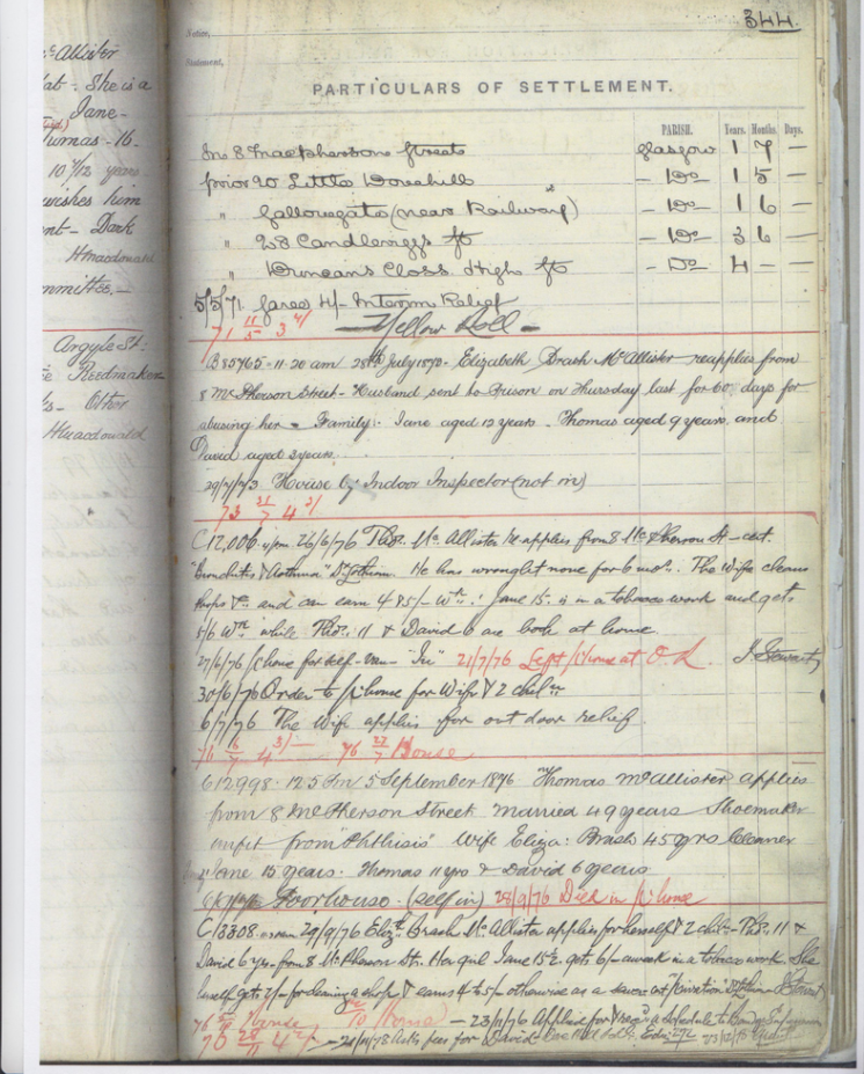 344.
Notice,
Statement,
PARTICULARS OF SETTLEMENT.
PARISH. Years. Months. Days.
In 8 Macpherson Street Glasgow 1 7 —
prior 20 Little Dovehill — Do — 1 5 —
" Gallowgate (near Railway) — Do — 1 6 —
" 28 Candleriggs St — Do — 3 6 —
" Duncan's Closs High St — Do — 4 — —
5/5/71 4/- Interim Relief
71 11/5 3 4/ — Yellow Roll —
B85765 - 11.20 am 28th July Elizabeth Brash McAllister reapplies from
8 McPherson Street - Husband sent to Prison on Thursday last for 60 days for
abusing her - Family: Jane aged 12 years. Thomas aged 9 years. and
David aged 3 years.
29/7/73 House by Indoor Inspector (not in)
73 31/7 4 3/
C12,006 26/6/76 Thos. McAllister Re-applies from 8 McPherson St - cert.
"Bronchitis & Asthma" Dr. He has wrought none for 6 mos. The Wife cleans
shops &c. and can earn 4 @ 5/- Wk. Jane 15. is in a tobacco work and gets
5/6 Wk while Thos. 11 & David 6 are both at home.
27/6/76 P/house for self - van - "In" 21/7/76 Left P/house at O. R. J Stewart
30/6/76 Order to P/house for Wife & 2 chiln
6/7/76 The Wife applies for out door relief
76 6/7 4 3/- 76 27/7 House
C12998. 12.5 Pm 5 September 1876 Thomas McAllister applies
from 8 McPherson Street married 49 years Shoemaker
unfit from "Phthisis" Wife Eliza: Brash 45 yrs Cleaner
Jane 15 years. Thomas 11 yrs & David 6 years
Poorhouse. (self in) 28/9/76 Died in P/house
C13308. 29/9/76 Elizth Brash McAllister applies for herself & 2 chiln - Thos. 11 &
David 6 yrs - from 8 McPherson St. Her girl Jane 15½ gets 6/- a week in a tobacco work She
herself gets 2/- for cleaning a shop & earns 4 to 5/- otherwise as a
76 House 10 (Home) — 23/11/76 Applied for a Schedule to
76 28/11 4 2/ — 21/11/78 Asks fees for David
McAllister
She is a
Jane -
Thomas - 16 -
10 7/12 years
wishes him
Dark
HMacdonald
Committee. -
Argyle St:
Reedmaker
Other
HMacdonald